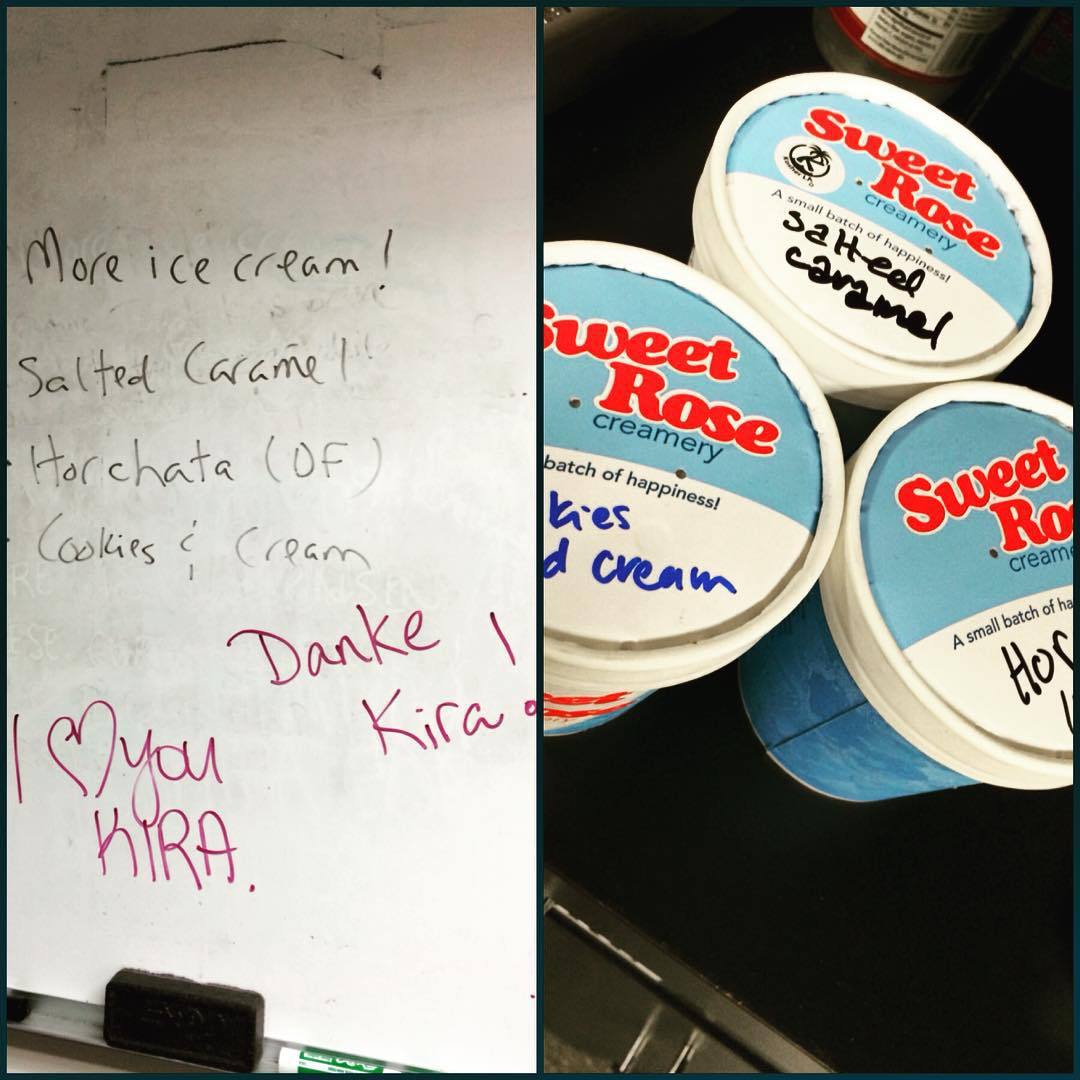 More ice cream!
Salted Caramel
Horchata (DF)
Cookies & Cream
Danke
Kira
I ♡ you
KIRA.
Sweet
Rose
creamery
A small batch of happiness!
salted
caramel
Sweet
Rose
creamery
batch of happiness!
kies
d cream
Sweet
Ro
cream
A small batch of ha
Hor